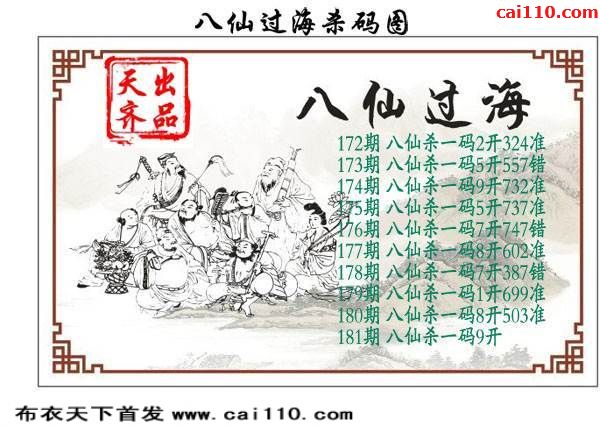 八仙过海杀码图
cai110.com
天 出
齐 品
八仙过海
172期 八仙杀一码2开324准
173期 八仙杀一码5开557错
174期 八仙杀一码9开732准
175期 八仙杀一码5开737准
176期 八仙杀一码7开747错
177期 八仙杀一码8开602准
178期 八仙杀一码7开387错
179期 八仙杀一码1开699准
180期 八仙杀一码8开503准
181期 八仙杀一码9开
布衣天下首发 www.cai110.com